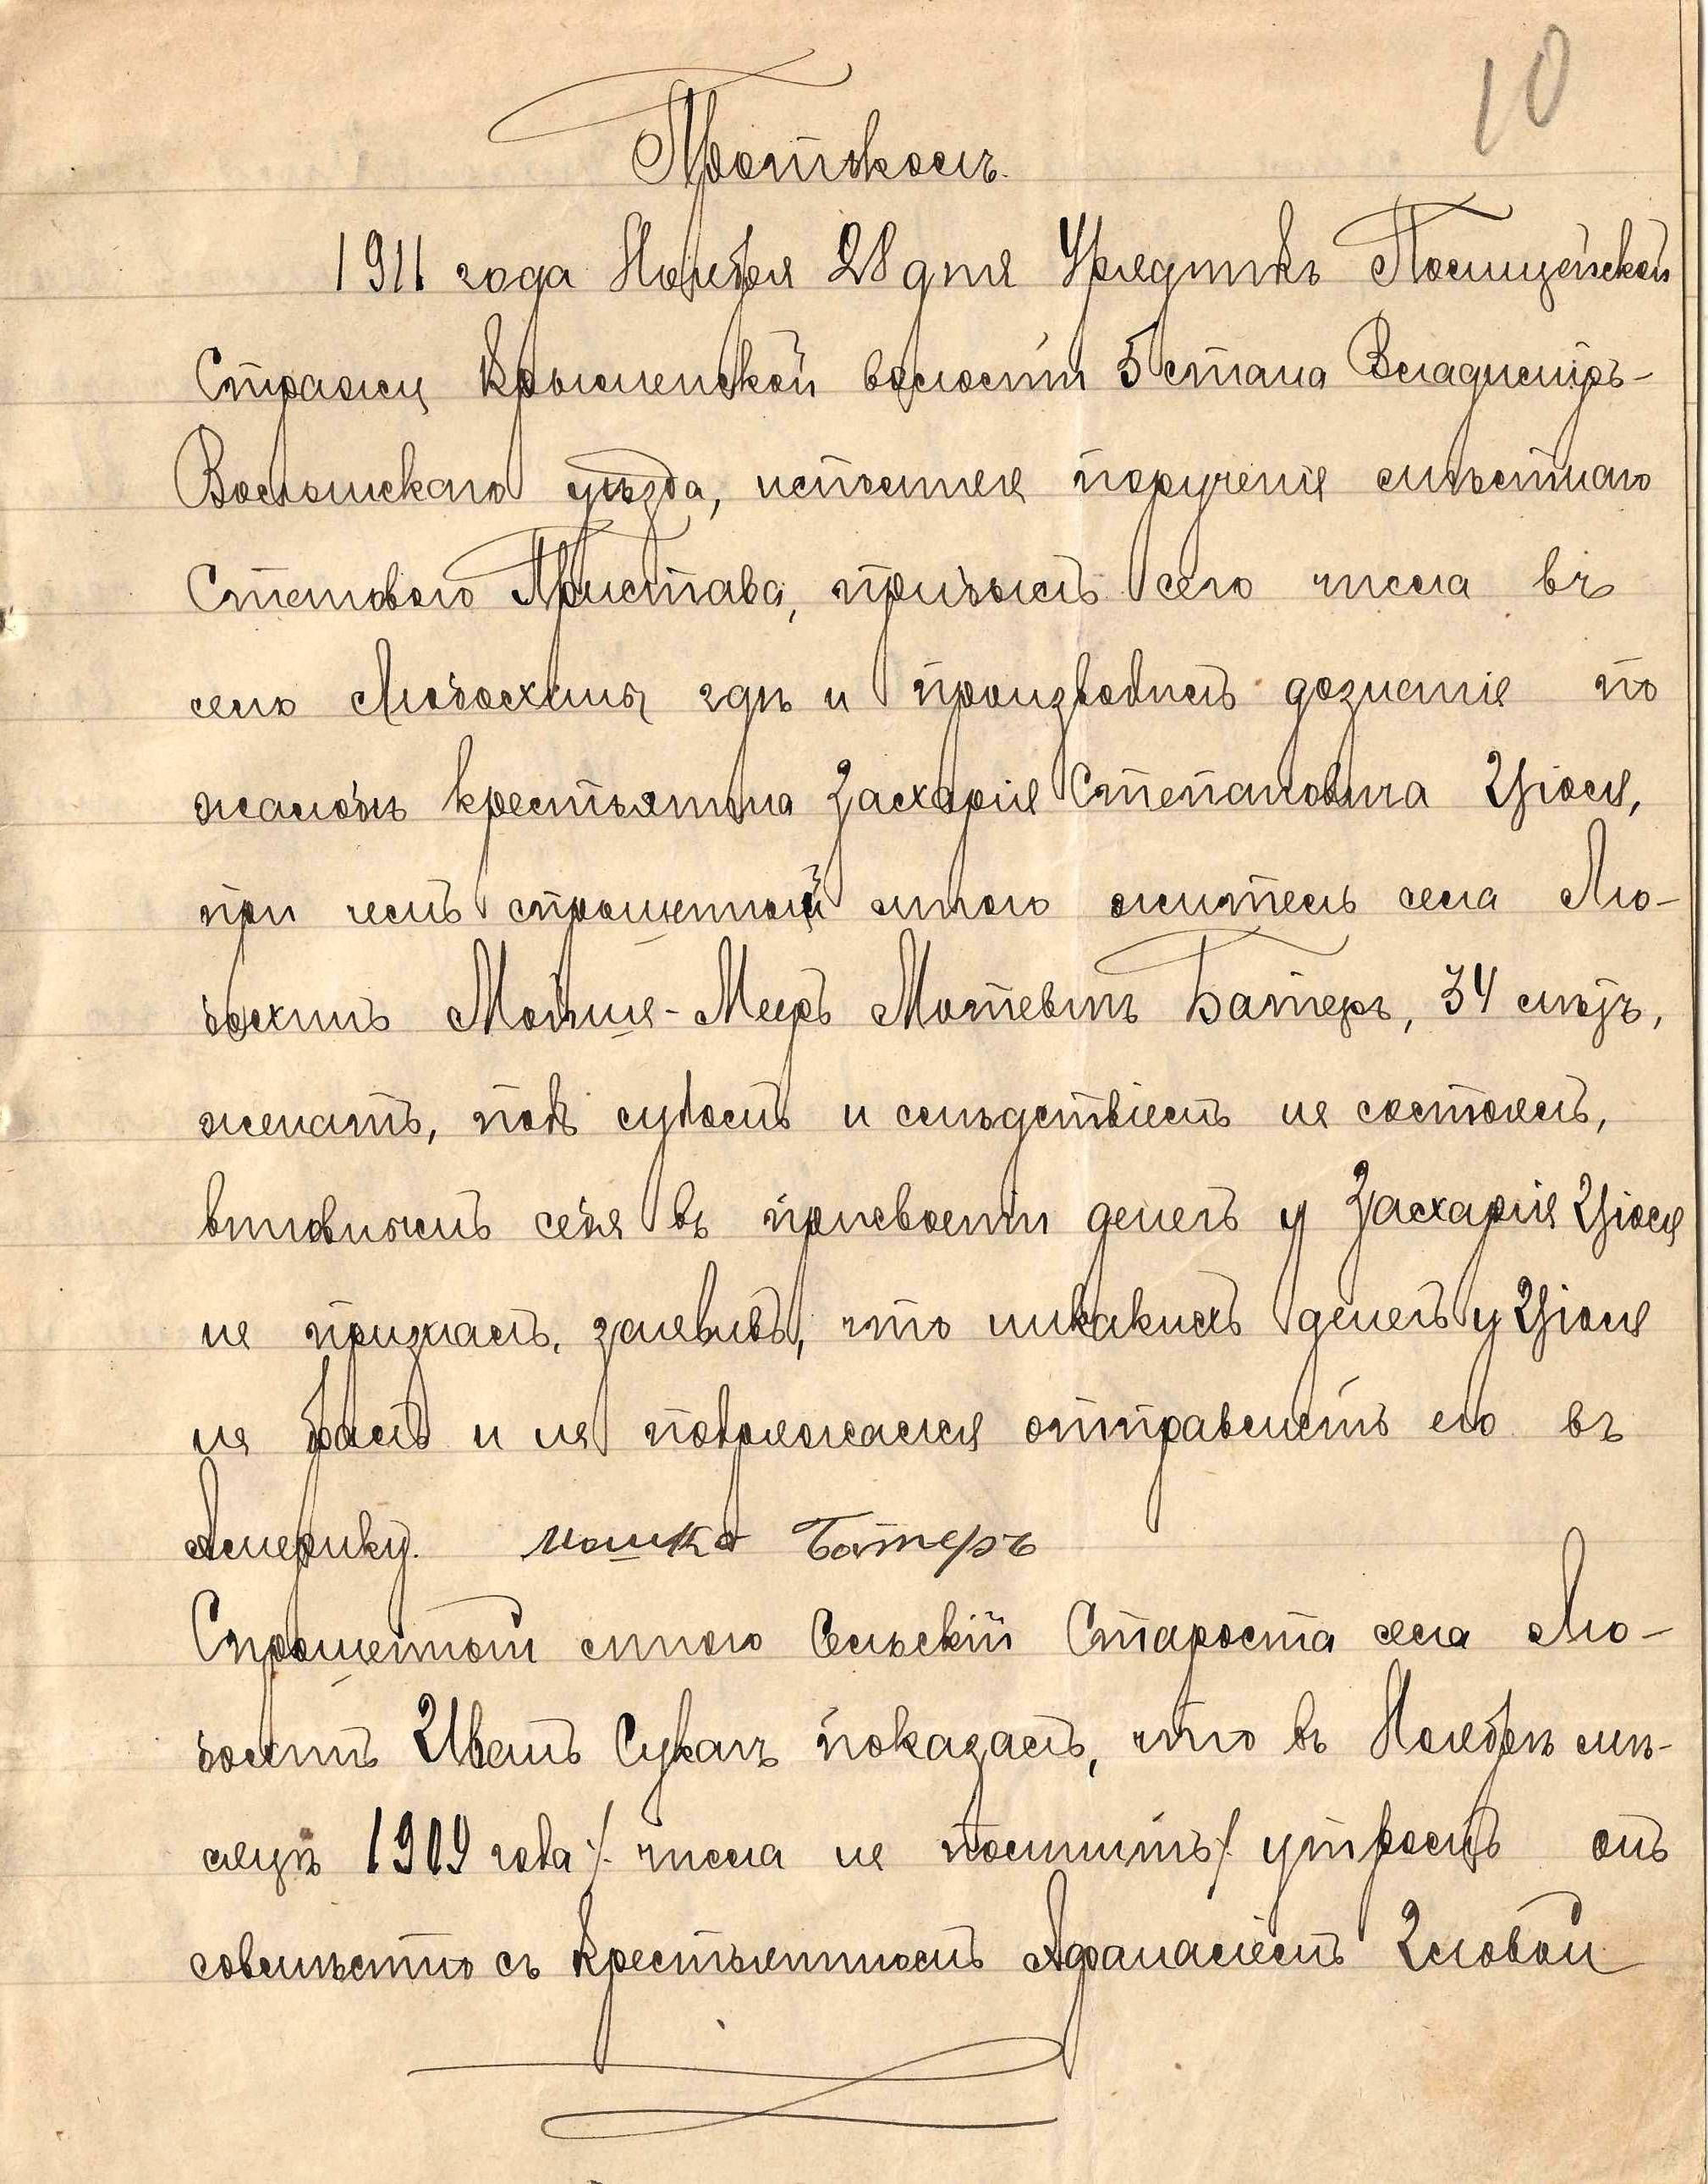 10
Протоколъ.
1911 года Ноября 28 дня Урядникъ Полицейской
Стражи Крымненской волости 5 стана Владиміръ-
Волынскаго уѣзда, исполняя порученіе мѣстнаго
Станового Пристава, прибылъ сего числа въ
село Любохины гдѣ и производилъ дознаніе по
жалобѣ крестьянина Захарія Степановича Цюся,
при чемъ спрошенный мною житель села Лю-
бохинъ Мойше-Мееръ Мотевичъ Батеръ, 34 лѣтъ,
женатъ, подъ судомъ и слѣдствіемъ не состоялъ,
виновнымъ себя въ присвоеніи денегъ у Захарія Цюся
не призналъ, заявивъ, что никакихъ денегъ у Цюся
не бралъ и не подряжался отправлять его въ
Америку. Мошко Батеръ
Спрошенный мною Сельскій Староста села Лю-
бохинъ Иванъ Сукачъ показалъ, что въ Ноябрѣ мѣ-
сяцѣ 1909 года /. числа не помнитъ /. утромъ онъ
совмѣстно съ крестьяниномъ Афанасіемъ